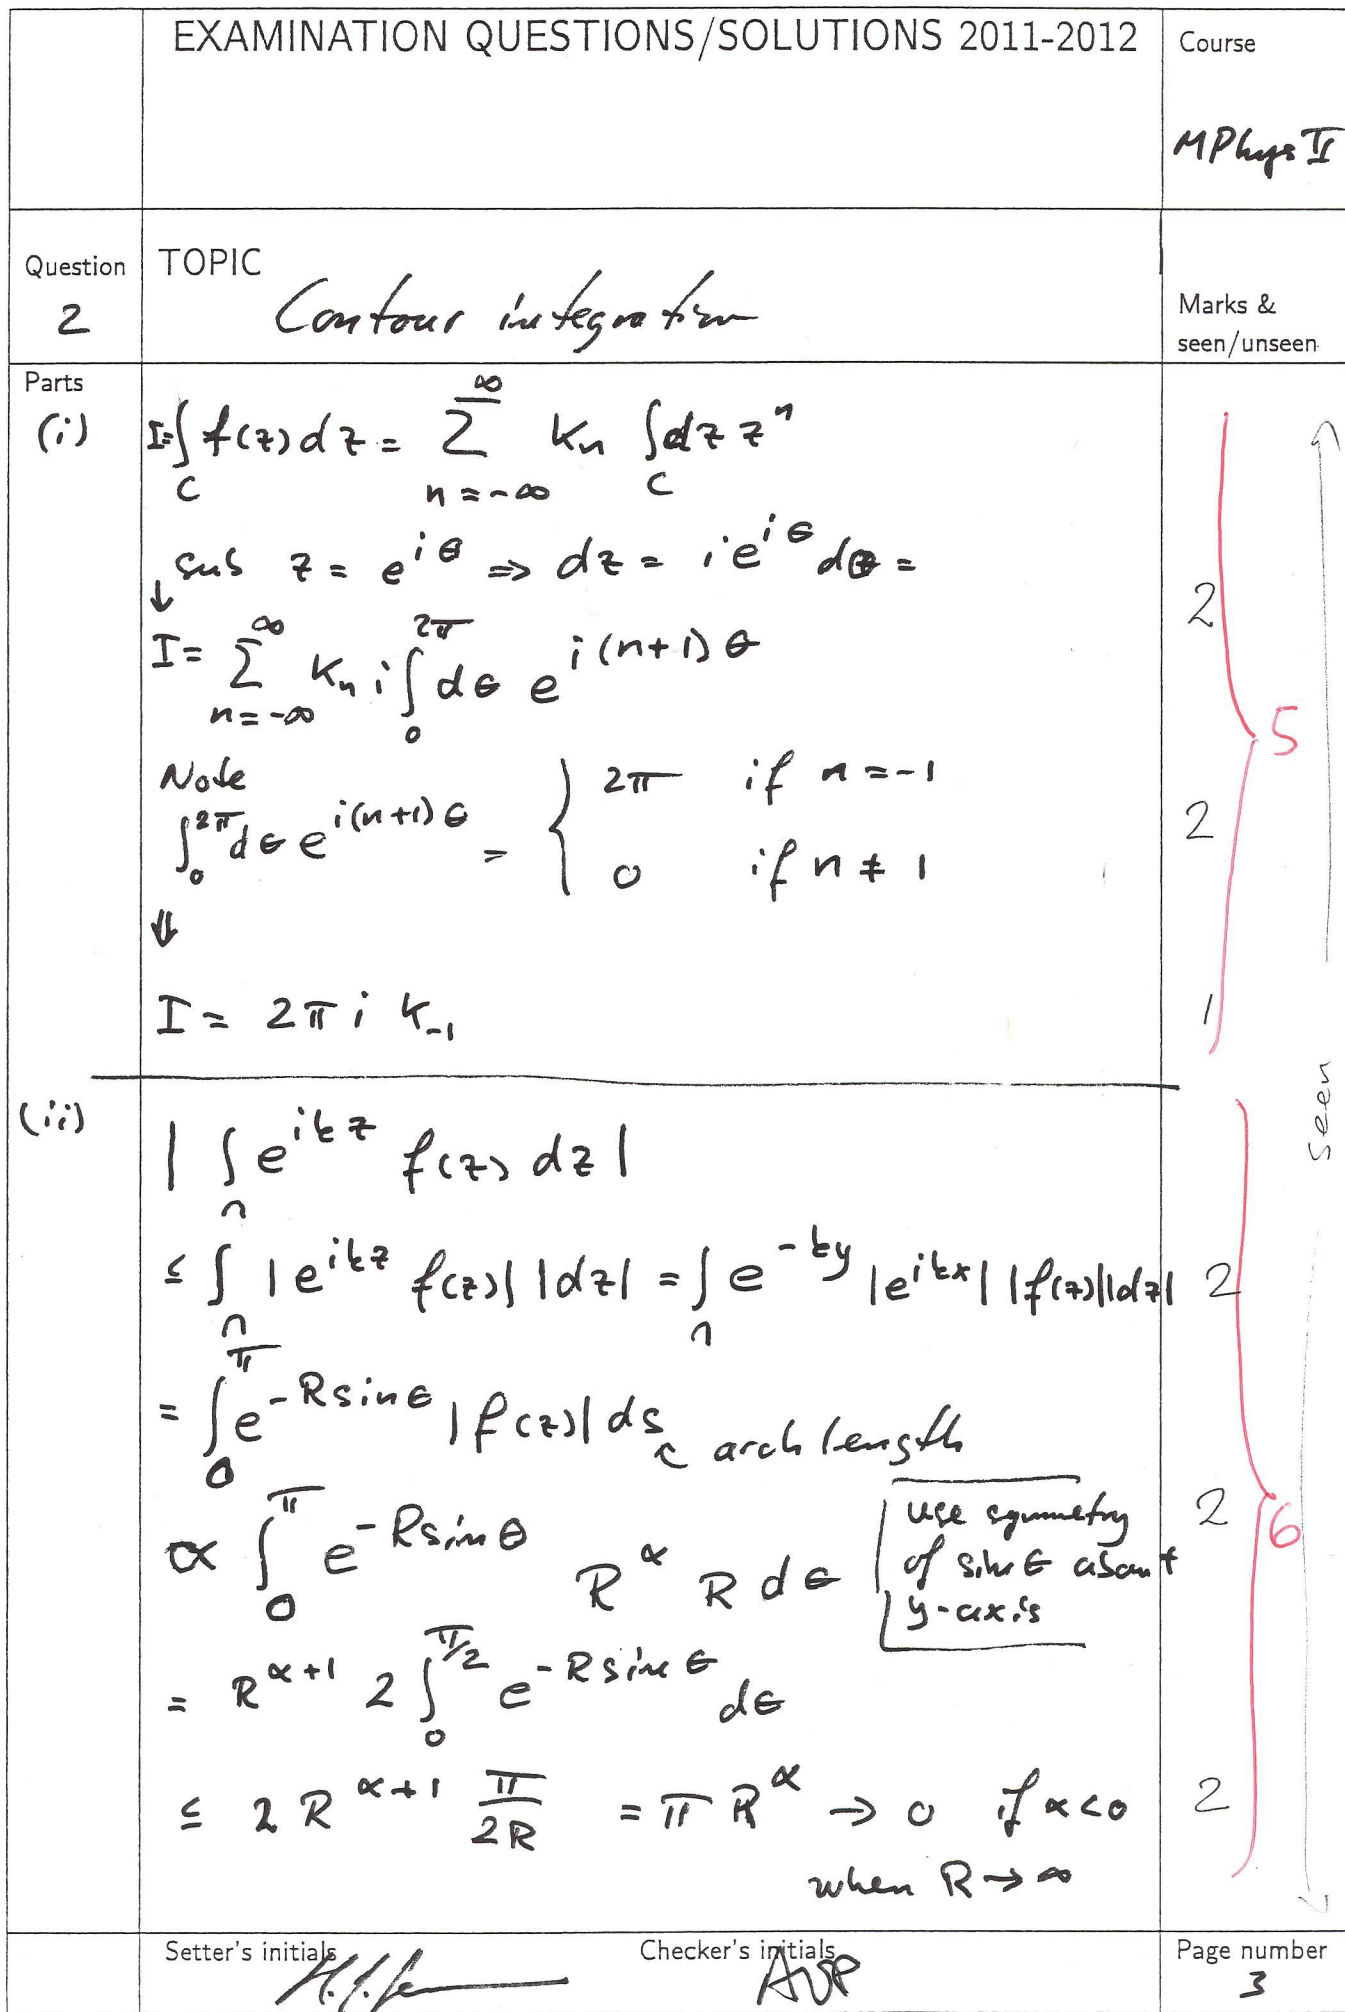 EXAMINATION QUESTIONS/SOLUTIONS 2011-2012
Course
MPhys II
Question
2
TOPIC
Contour integration
Marks &
seen/unseen
Parts
(i)
I=∫_C f(z) dz = Σ_{n=-∞}^{∞} K_n ∫_C dz z^n
↓ sub z = e^{iθ} ⇒ dz = i e^{iθ} dθ =
2
I = Σ_{n=-∞}^{∞} K_n i ∫_0^{2π} dθ e^{i(n+1)θ}
5
Note
∫_0^{2π} dθ e^{i(n+1)θ} = { 2π if n = -1
0 if n ≠ 1
2
⇓
I = 2π i K_{-1}
1
seen
(ii)
| ∫_∩ e^{ikz} f(z) dz |
≤ ∫_∩ |e^{ikz} f(z)| |dz| = ∫_∩ e^{-ky} |e^{ikx}| |f(z)||dz|
2
= ∫_0^π e^{-R sin θ} |f(z)| ds ↖ arch length
∝ ∫_0^π e^{-R sin θ} R^α R dθ
use symmetry
of sin θ about
y-axis
2
6
= R^{α+1} 2 ∫_0^{π/2} e^{-R sin θ} dθ
≤ 2 R^{α+1} π/2R = π R^α → 0 if α<0
2
when R → ∞
Setter's initials
Checker's initials
AVP
Page number
3